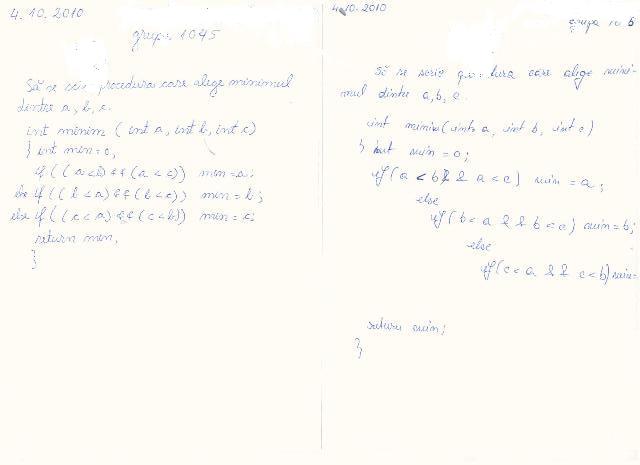 4. 10. 2010
grupa 1045
Să se scrie procedura care alege minimul
dintre a, b, c.
int minim ( int a, int b, int c)
} int min = 0;
if ((a<b) &&(a<c)) min=a;
else if ((b<a)&&(b<c)) min=b;
else if ((c<a) &&(c<b)) min=c;
return min;
}
4.10.2010
grupa 10 5
Să se scrie care alege mini-
mul dintre a, b, c.
int minim( int a, int b, int c)
} int min = 0;
if (a < b && a < c) min = a;
else
if (b < a && b < c) min = b;
else
if (c < a && c < b) min=
return min;
}